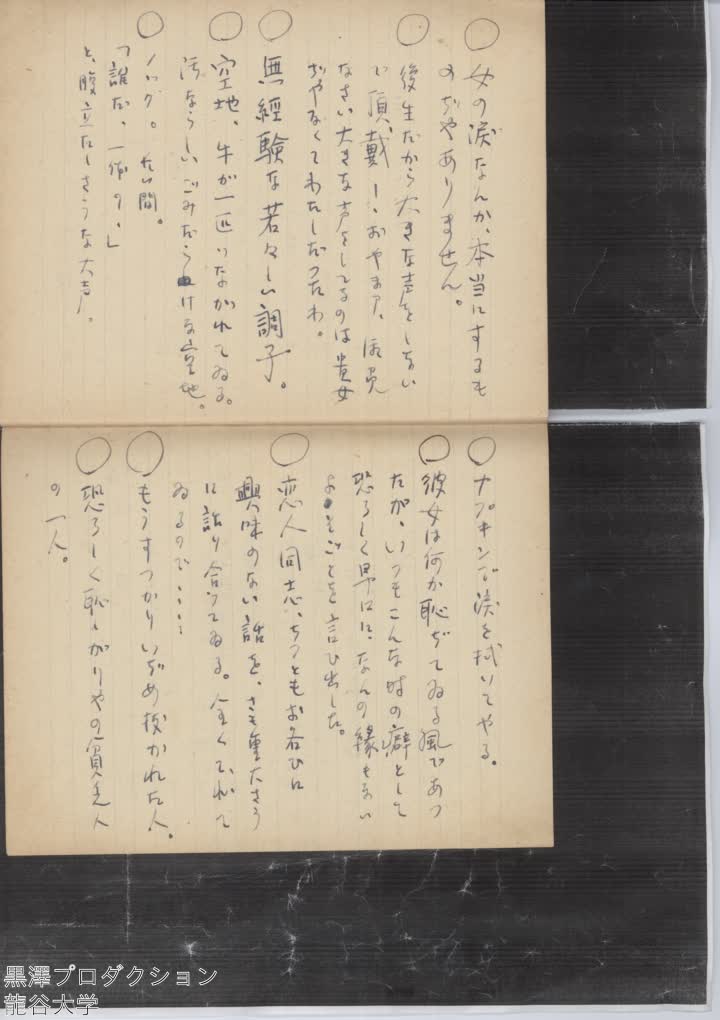 ○ 女の涙なんか、本当にするも
のぢやありません。
○ 後生だから大きな声をしない
で頂戴――おやまア、
なさい大きな声をしてるのは貴女
ぢやなくてわたしだつたわ。
○ 無経験な若々しい調子。
○ 空地、牛が一匹つながれてゐる。
汚ならしい、ごみだらけな空地。
○ ノック。短い間。
「誰だ、一体?」
と、腹立たしさうな大声。
○ ナプキンで涙を拭いてやる。
○ 彼女は何か恥ぢてゐる風であつ
たが、いつもこんな時の癖として
恐ろしく早口に、なんの縁もない
よそごとを言ひ出した。
○ 恋人同志、ちつともお互ひに
興味のない話を、さも重大さう
に語り合つてゐる。全くてれて
ゐるので‥‥
○ もうすつかりいぢめ抜かれた人。
○ 恐ろしく恥しがりやの貧乏人
の一人。
黒澤プロダクション
龍谷大学